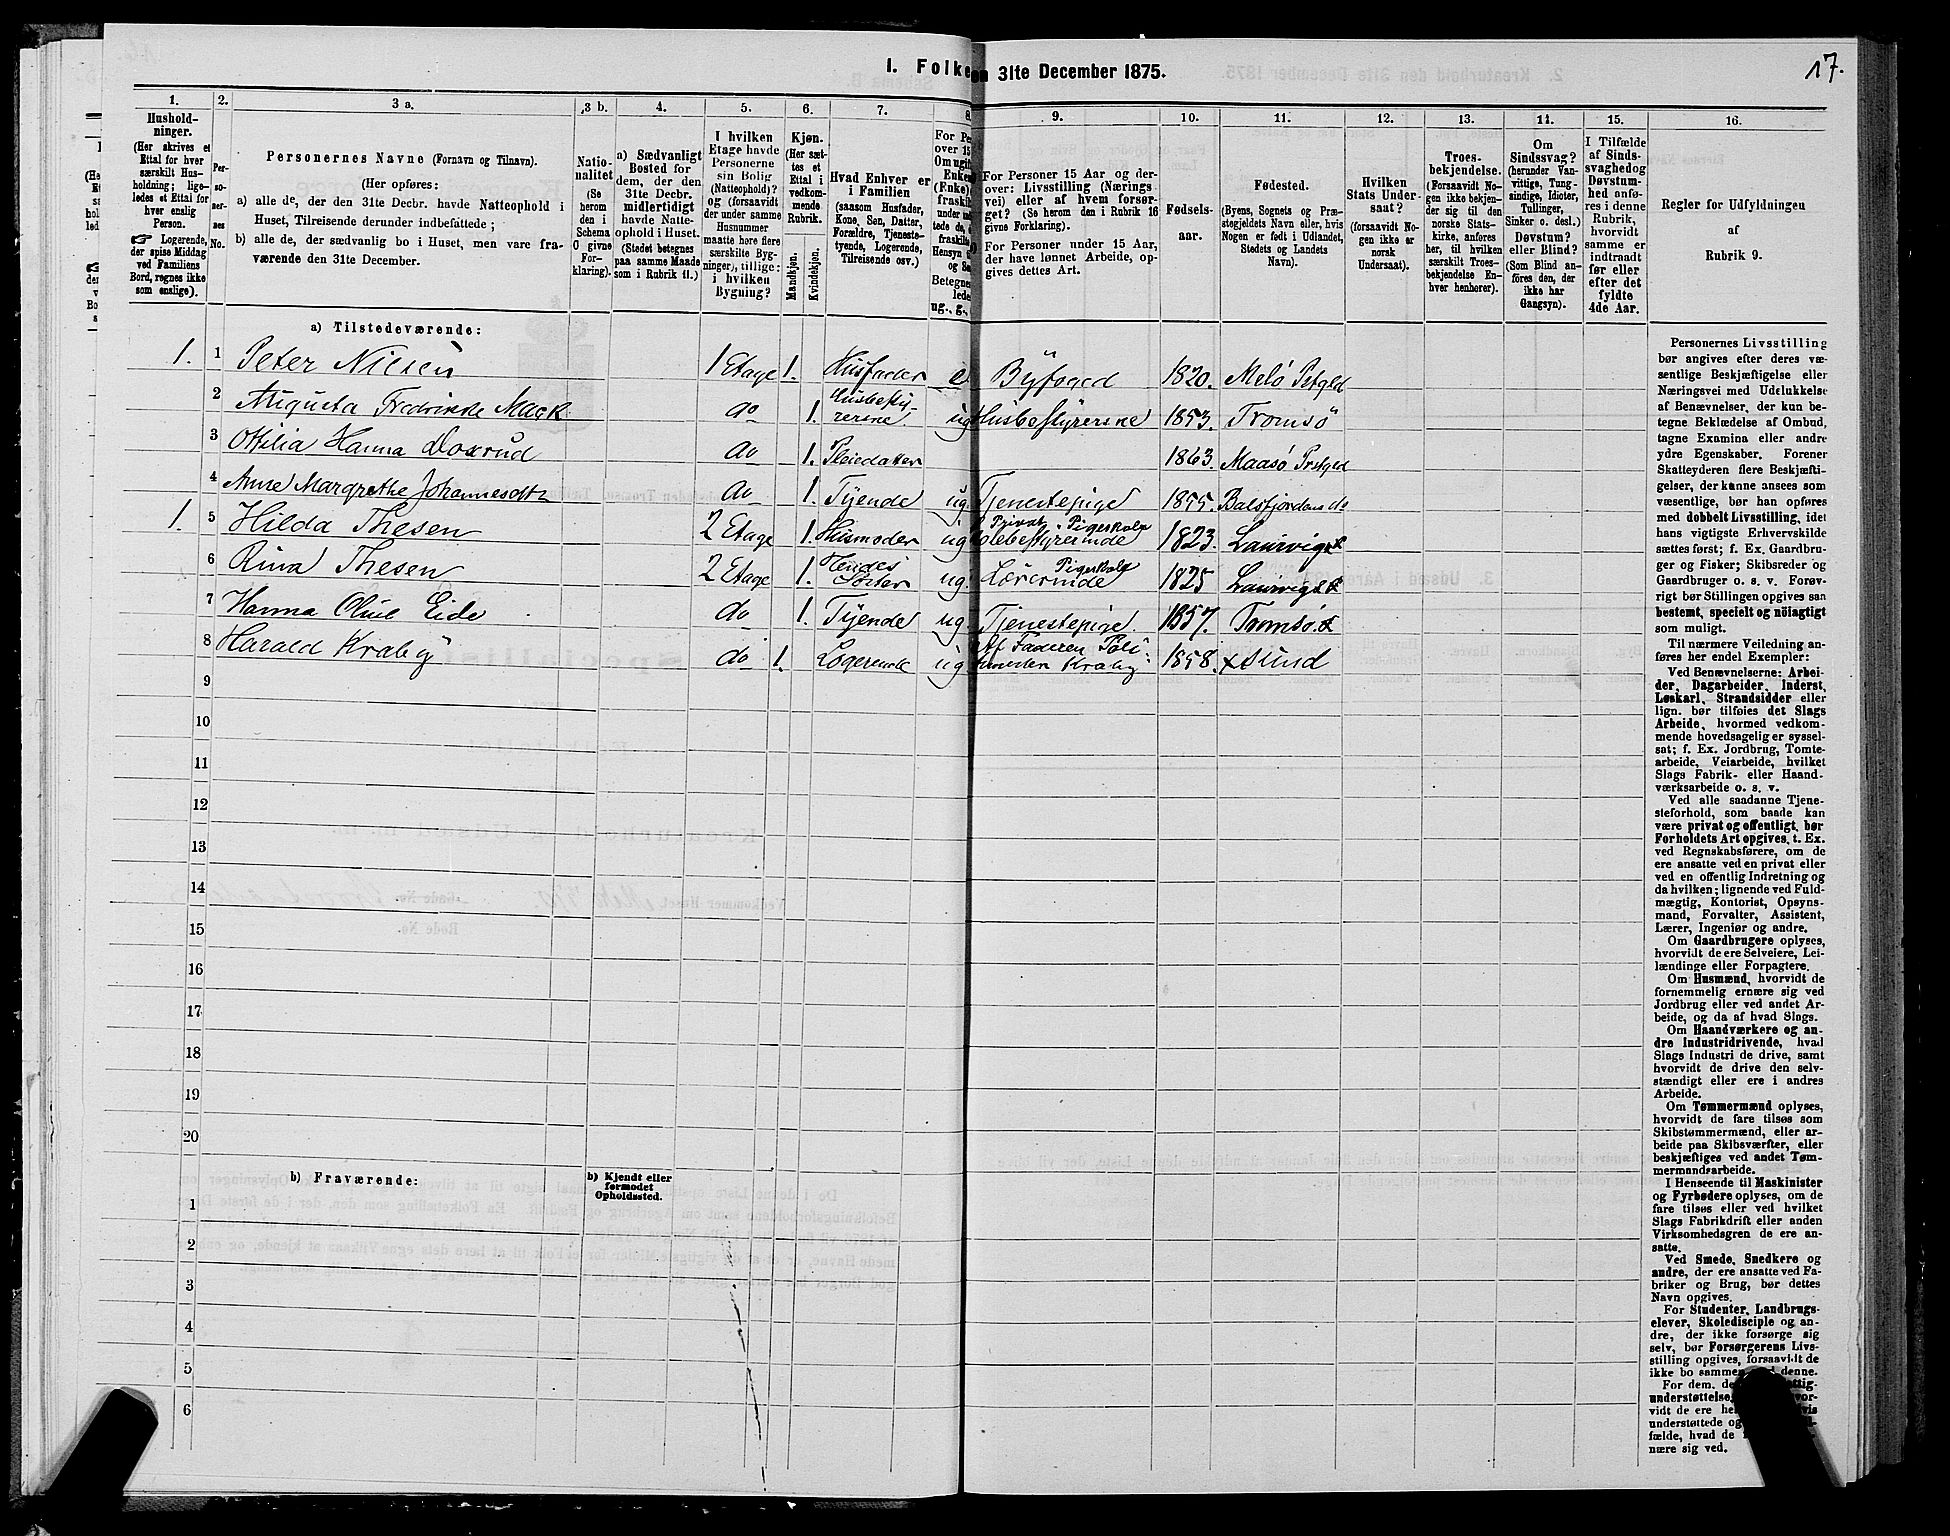 17.
1. Folke en 31te December 1875.
1. 2. 3 a. 3 b. 4. 5. 6. 7. 8. 9. 10. 11. 12. 13. 14. 15. 16.
Hushold-
ninger.
(Her skrives et
Ettal for hver
særskilt Hus-
holdning; lige-
ledes et Ettal for
hver enslig
Person.
☞ Logerende,
der spise Middag
ved Familiens
Bord, regnes ikke
som enslige).
Per-
so-
ner-
ses
No.
Personernes Navne (Fornavn og Tilnavn).
(Her opføres:
a) alle de, der den 31te Decbr. havde Natteophold i
Huset, Tilreisende derunder indbefattede;
b) alle de, der sædvanlig bo i Huset, men vare fra-
værende den 31te December.
Natio-
nalitet
(Se
herom
den i
Schema
O givne
For-
klaring).
a) Sædvanligt
Bosted for
dem, der den
31te Decbr.
midlertidigt
havde Natte-
ophold i Huset.
(Stedet betegnes
paa samme Maade
som i Rubrik 11.)
I hvilken
Etage havde
Personerne
sin Bolig
(Natteophold)?
og (forsaavidt
der under samme
Husnummer
maatte høre flere
særskilte Byg-
ninger), tillige:
i hvilken
Bygning?
Kjøn.
(Her sæt-
tes et
Ettal i
vedkom-
mende
Rubrik.
Mandkjøn.
Kvindekjøn.
Hvad Enhver er
i Familien
(saasom Husfader,
Kone, Søn, Datter,
Forældre, Tjeneste-
tyende, Logerende,
Tilreisende osv.)
For Pe
over 15
Om ugift
Enke
(Enke)
fraskil
under
tede d
fraskil
Hensyn
og Se
Betegne
lede
ug., g.,
For Personer 15 Aar og der-
over: Livsstilling (Nærings
vei) eller af hvem forsør-
get? (Se herom den i Rubrik 16
givne Forklaring).
For Personer under 15 Aar,
der have lønnet Arbeide, op-
gives dettes Art.
Fødsels-
aar.
Fødested.
(Byens, Sognets og Præ-
stegjeldets Navn, eller hvis
Nogen er født i Udlandet,
Stedets og Landets
Navn).
Hvilken
Stats Under-
saat?
(forsaavidt No-
gen ikke er
norsk
Undersaat).
Troes-
bekjendelse.
(Forsaavidt No-
gen ikke bekjen-
der sig til den
norske Stats-
kirke, anføres
her, til hvilken
særskilt Troes-
bekjendelse En-
hver henhører).
Om
Sindssvag?
(herunder Van-
vittige, Tung-
sindige, Idioter,
Tullinger,
Sinker o. desl.)
Døvstum?
eller Blind?
(Som Blind an-
føres den, der
ikke har
Gangsyn).
I Tilfælde
af Sinds-
svaghed og
Døvstum-
hed anfø-
res i denne
Rubrik,
hvorvidt
samme er
indtraadt
før eller
efter det
fyldte
4de Aar.
Regler for Udfyldningen
af
Rubrik 9.
a) Tilstedeværende:
1. 1 Peter Nilsen 1 Etage 1. Husfader e Byfoged 1820. Melø Prstgld
2 Augusta Fredrikke Mack do 1. Husbesty-
rerske ug Husbestyrerske 1853. Tromsø
3 Ottilia Hanna Doxrud do 1. Pleiedatter 1863. Maasø Prstgld
4 Anne Margrethe Johannesdtr do 1. Tyende ug. Tjenestepige 1855. Balsfjorden
1. 5 Hilda Thesen 2 Etage 1. Husmoder ug Privat Pigeskole
bestyrerinde 1823. Laurvig
6 Rina Thesen 2 Etage 1. Hendes
Søster ug. Pigeskole
Lærerinde 1825 Laurvig
7 Hanna Oline Eide do 1. Tyende ug. Tjenestepige 1857. Tromsø
8 Harald Kraby do 1. Logerende ug Af Faderen Poli-
Kraby 1858. Lund
9
10
11
12
13
14
15
16
17
18
19
20
b) Fraværende:
b) Kjendt eller
formodet
Opholdssted.
1
2
3
4
5
6
Personernes Livsstilling
bør angives efter deres væ-
sentlige Beskjæftigelse eller
Næringsvei med Udelukkelse
af Benævnelser, der kun be-
tegne Beklædelse af Ombud,
tagne Examina eller andre
ydre Egenskaber. Forener
Skatteyderen flere Beskjæfti-
gelser, der kunne ansees som
væsentlige, bør han opføres
med dobbelt Livsstilling, idet
hans vigtigste Erhvervskilde
sættes først; f. Ex. Gaardbru-
ger og Fisker; Skibsreder og
Gaardbruger o. s. v. Forøv-
rigt bør Stillingen opgives saa
bestemt, specielt og nøiagtigt
som muligt.
Til nærmere Veiledning an-
føres her endel Exempler:
Ved Benævnelserne: Arbei-
der, Dagarbeider, Inderst,
Løskarl, Strandsidder eller
lign. bør tilføies det Slags
Arbeide, hvormed vedkom-
mende hovedsagelig er syssel-
sat; f. Ex. Jordbrug, Tomte-
arbeide, Veiarbeide, hvilket
Slags Fabrik- eller Haand-
værksarbeide o. s. v.
Ved alle saadanne Tjene-
steforhold, som baade kan
være privat og offentligt, bør
Forholdets Art opgives, t. Ex.
ved Regnskabsførere, om de
ere ansatte ved en privat eller
ved en offentlig Indretning og
da hvilken; lignende ved Fuld-
mægtig, Kontorist, Opsyns-
mand, Forvalter, Assistent,
Lærer, Ingeniør og andre.
Om Gaardbrugere oplyses,
hvorvidt de ere Selveiere, Lei-
lændinge eller Forpagtere.
Om Husmænd, hvorvidt de
fornemmelig ernære sig ved
Jordbrug eller ved andet Ar-
beide, og da af hvad Slags.
Om Haandværkere og an-
dre Industridrivende, hvad
Slags Industri de drive, samt
hvorvidt de drive den selv-
stændigt eller ere i andres
Arbeide.
Om Tømmermænd oplyses,
hvorvidt de fare tilsøs som
Skibstømmermænd, eller ar-
beide paa Skibsværfter, eller
beskjæftiges ved andet Tøm-
mermandsarbeide.
I Henseende til Maskinister
og Fyrbødere oplyses, om de
fare tilsøs eller ved hvilket
Slags Fabrikdrift eller anden
Virksomhedsgren de ere an-
satte.
Ved Smede, Snedkere og
andre, der ere ansatte ved Fa-
briker og Brug, bør dettes
Navn opgives.
For Studenter, Landbrugs-
elever, Skoledisciple og an-
dre, der ikke forsørge sig
selv, bør Forsørgerens Livs-
stilling opgives, forsaavidt de
ikke bo sammen med denne.
For dem, de ttig-
understøttelse, vor-
vidt de ere he vis
understøttede og l-
fælde, hvad de
nære sig ved.